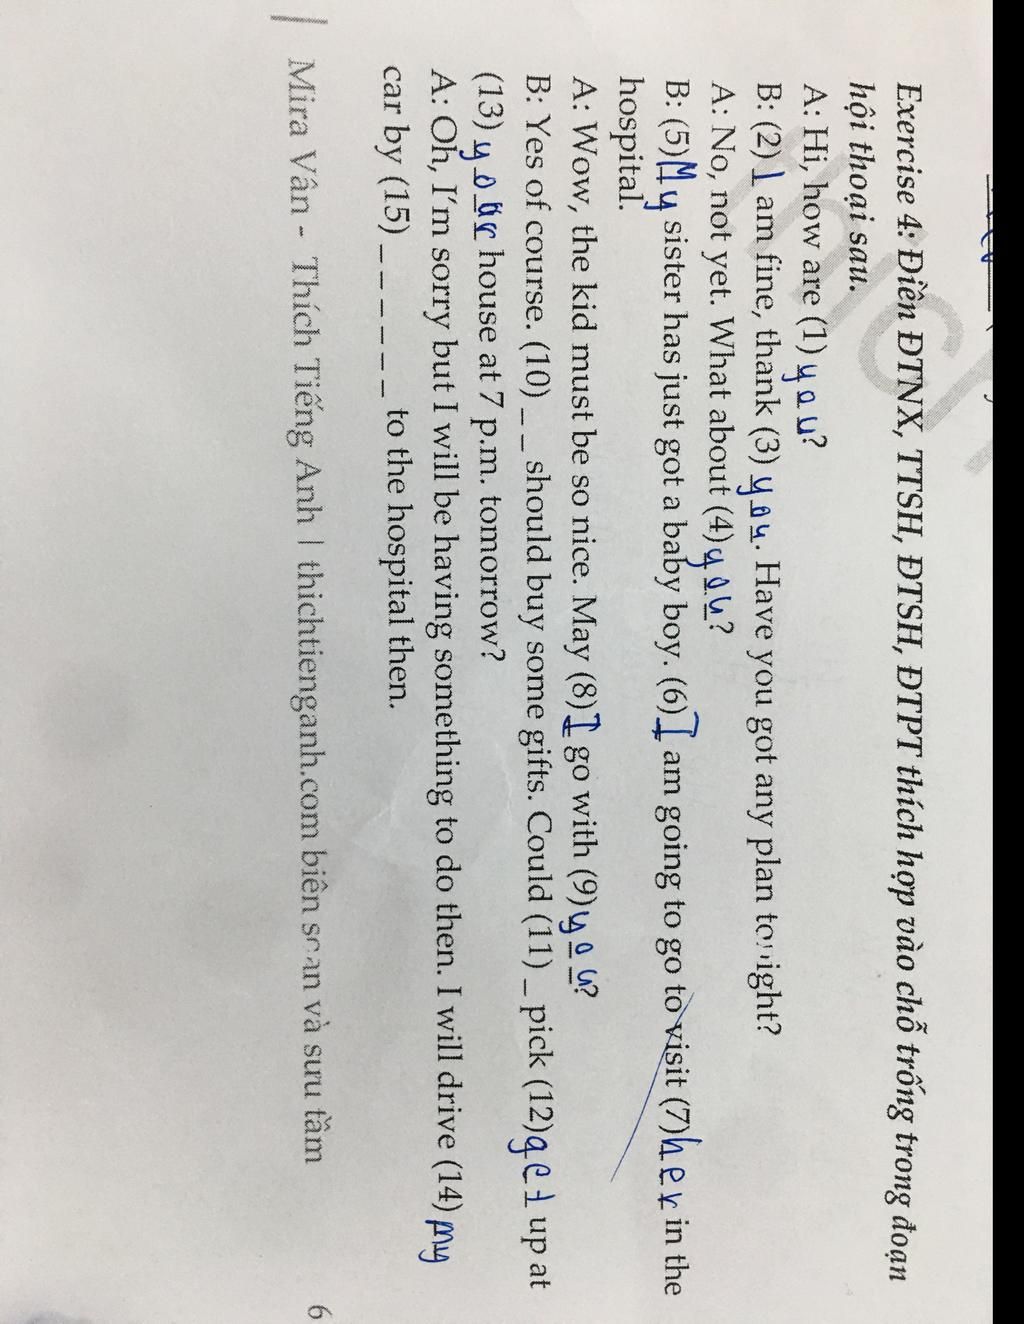 Exercise 4: Điền ĐTNX, TTSH, ĐTSH, ĐTPT thích hợp vào chỗ trống trong đoạn
hội thoại sau.
A: Hi, how are (1) you?
B: (2) I am fine, thank (3) you. Have you got any plan tonight?
A: No, not yet. What about (4) you?
B: (5) My sister has just got a baby boy. (6) I am going to go to visit (7) her in the
hospital.
A: Wow, the kid must be so nice. May (8) I go with (9) you?
B: Yes of course. (10) _ _ should buy some gifts. Could (11) _ pick (12) get up at
(13) your house at 7 p.m. tomorrow?
A: Oh, I'm sorry but I will be having something to do then. I will drive (14) my
car by (15) _ _ _ _ _ _ to the hospital then.
Mira Vân - Thích Tiếng Anh | thichtienganh.com biên soạn và sưu tầm
6